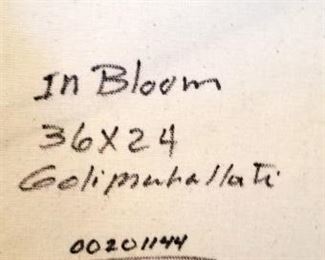 In Bloom
36x24
00201144